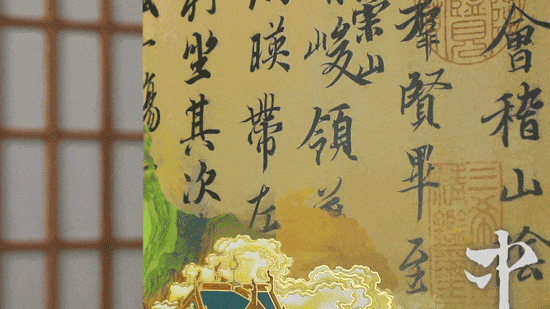 會稽山陰
羣賢畢至
崇山
峻領茂
暎帶左
列坐其次
一觴
中